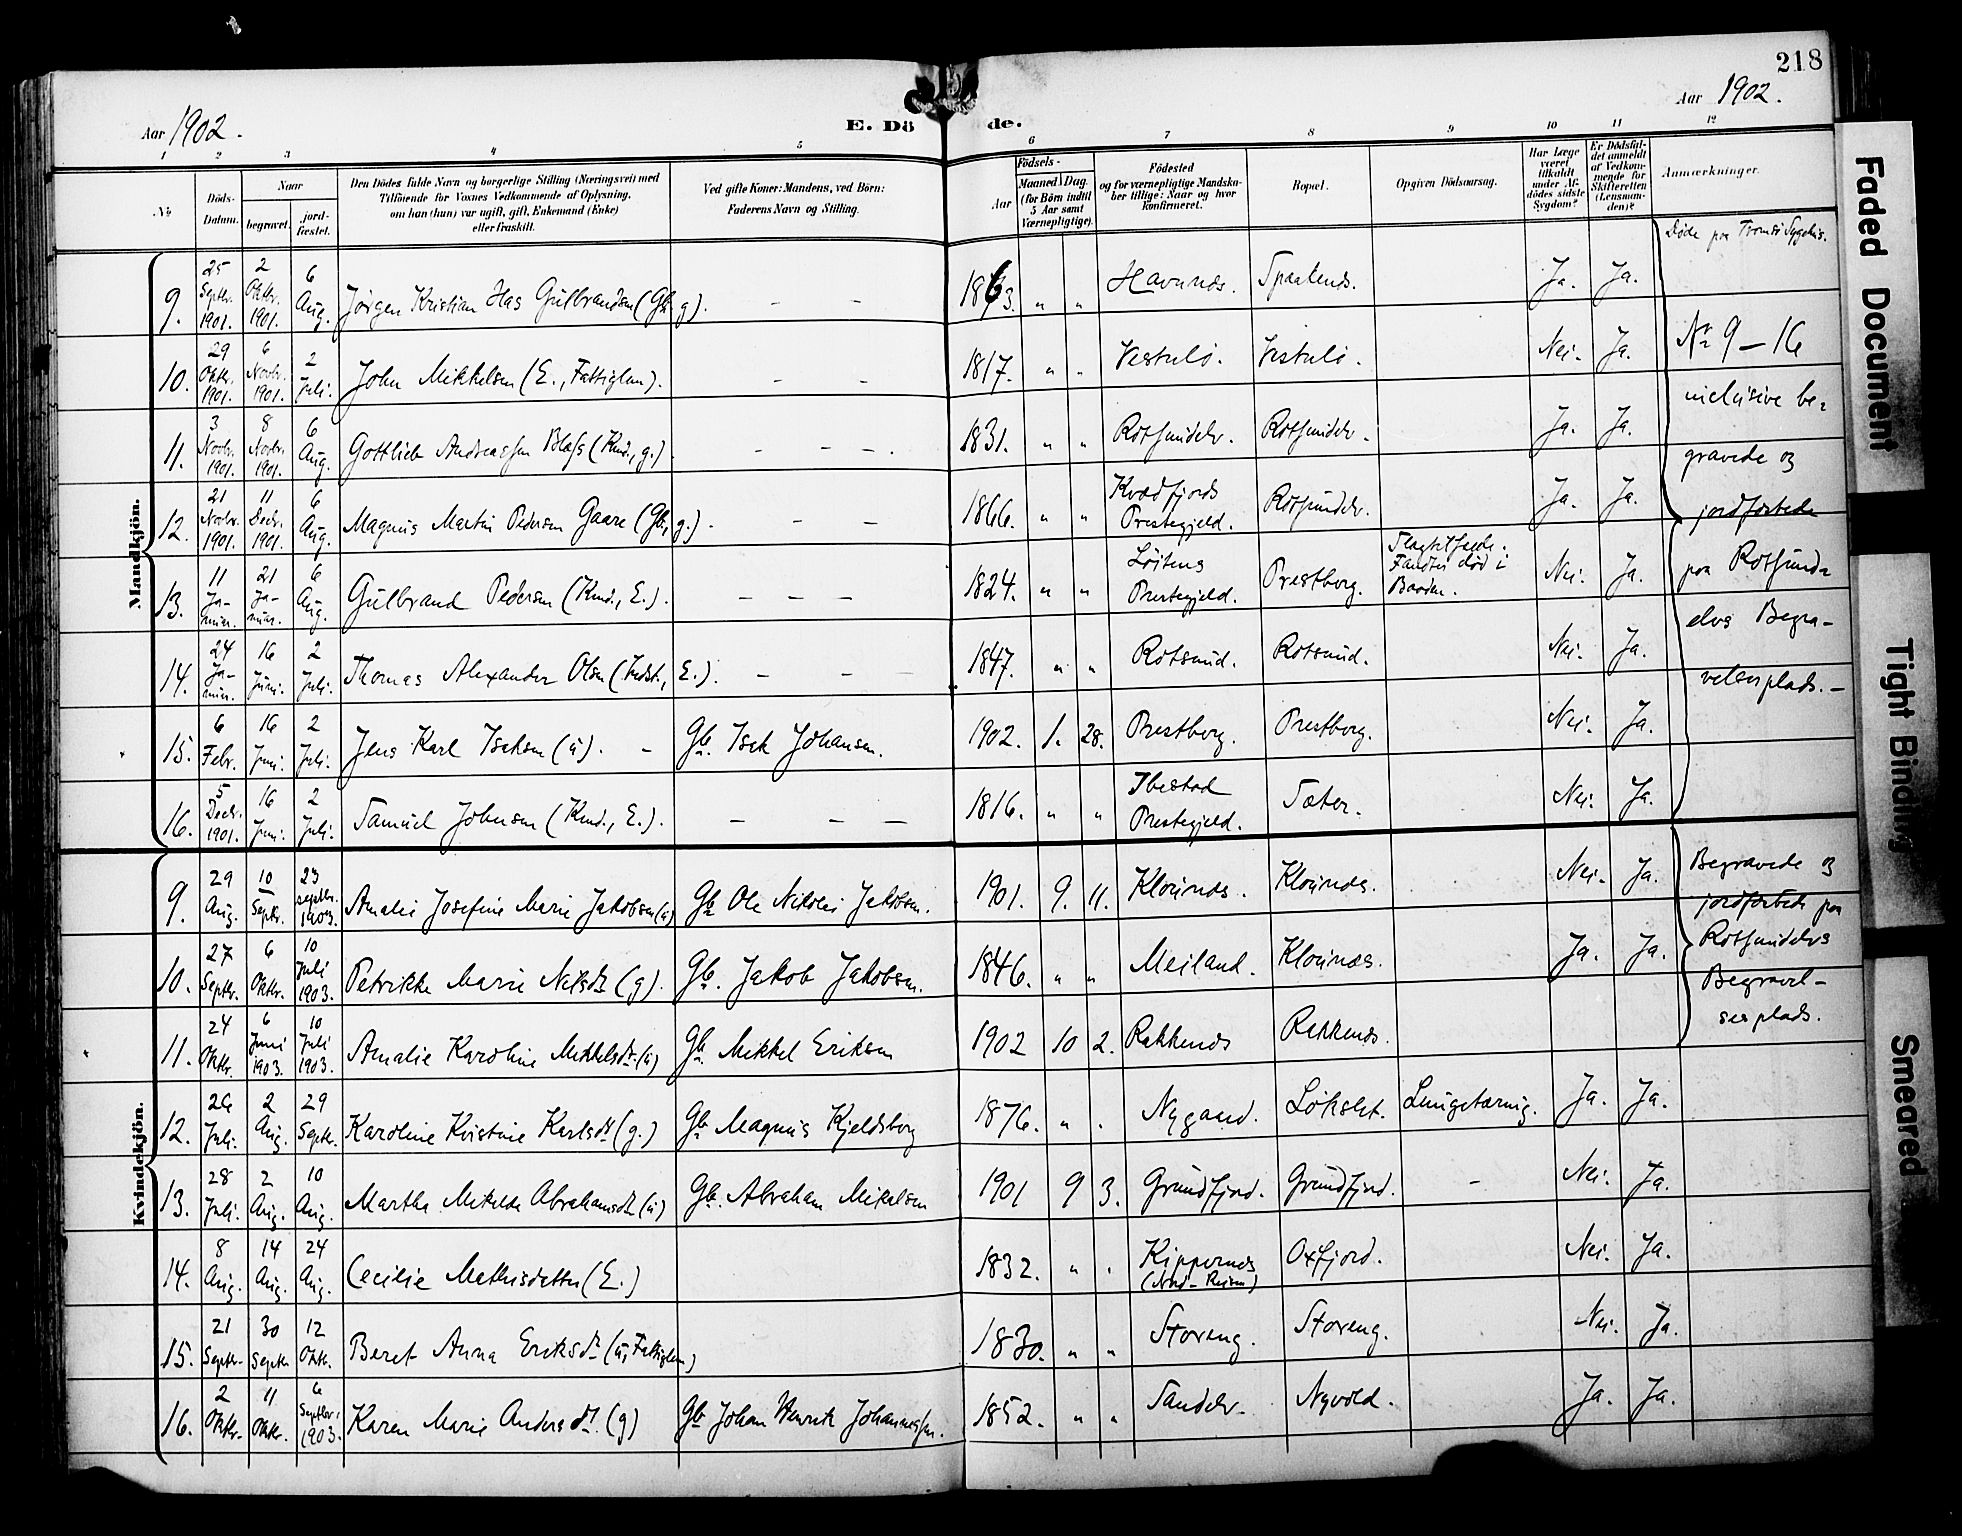 218
Aar 1902.
E. Döde.
Aar 1902.
1 2 3 4 5 6 7 8 9 10 11 12
No
Döds-Datum.
Naar
begravet.
jordfæstet.
Den Dödes fulde Navn og borgerlige Stilling (Næringsvei) med Tilföiende for Voxnes Vedkommende af Oplysning, om han (hun) var ugift, gift, Enkemand (Enke) eller fraskilt.
Ved gifte Koner: Mandens, ved Börn: Faderens Navn og Stilling.
Födsels-
Aar
Maaned Dag (for Börn indtil 5 Aar samt Værnepligtige).
Födested og for værnepligtige Mandskaber tillige: Naar og hvor konfirmeret.
Bopæl.
Opgiven Dödsaarsag.
Har Læge været tilkaldt under Afdödes sidste Sygdom?
Er Dödsfaldet anmeldt af Vedkommende for Skifteretten (Lensmanden)?
Anmærkninger.
Mandkjön.
9. 25 Septbr. 1901. 2 Oktbr. 1901. 6 Aug. Jørgen Kristian Has Gulbrandsen (Gbr., g). — — 1863. " " Havnnæs. Spaaknæs. Ja. Ja. Døde paa Tromsö Sygehus.
10. 29 Oktbr. 1901. 6 Novbr. 1901. 2 Juli. John Mikkelsen (E., Fattiglem). — — 1817. " " Vestulö. Vestulö. Nei. Ja.
11. 3 Novbr. 1901. 8 Novbr. 1901. 6 Aug. Gottlieb Andreassen Blæss (Kmd., g.) — — — 1831. " " Rotsundelv. Rotsundelv. Ja. Ja.
12. 21 Novbr. 1901. 11 Decbr. 1901. 6 Aug. Magnus Martin Pedersen Gaare (Gbr., g.). — — 1866. " " Kvædfjords Prestegjeld. Rotsundelv. Ja. Ja.
13. 11 Januar. 21 Januar. 6 Aug. Gulbrand Pedersen (Kmd., E.). — — — 1824. " " Løitens Prestegjeld. Prestborg. Fandtes død i Baaden. Nei. Ja.
14. 24 Januar. 16 Juni. 2 Juli. Thomas Alexander Olsen (Indst., E.). — — — 1847. " " Rotsund. Rotsund. Nei. Ja.
15. 6 Febr. 16 Juni. 2 Juli. Jens Karl Isaksen (u). — Gbr. Isak Johansen. 1902. 1. 28. Prestborg. Prestborg. Nei. Ja.
16. 5 Decbr. 1901. 16 Juni. 2 Juli. Samuel Johnsen (Kmd., E.). — — — 1816. " " Ibestad Prestegjeld. Sæter. Nei. Ja.
No 9 – 16
inclusive be-
gravede og
jordfæstede
paa Rotsund-
elvs Begra-
velsesplads. —
Kvindekjön.
9. 29 Aug. 10 Septbr. 23 septbr. 1903. Amalie Josefine Marie Jakobsen (u) Gbr Ole Nikolai Jakobsen. 1901. 9. 11. Klounæs. Klounæs. Nei. Ja.
10. 27 Septbr. 6 Oktbr. 10 Juli 1903. Petrikke Marie Nilsdt (g). Gbr. Jakob Jakobsen. 1846. " " Meiland. Klounæs. Ja. Ja.
11. 24 Oktbr. 6 Juni 1903. 10 Juli 1903. Amalie Karoline Mikkelsdt. (u) Gbr Mikkel Eriksen 1902 10 2. Rakkenæs Rakkenæs.
Begravede og
jordfæstede paa
Rotsundelvs
Begravel-
sesplads.
12. 26 Juli. 2 Aug. 29 Septbr. Karoline Kristine Karlsdt (g.) Gbr Magnus Kjeldsberg 1876. " . Nygaard. Lökslet. Lungetæring. Ja. Ja.
13. 28 Juli. 2 Aug. 10 Aug. Martha Mikalda Abrahamsdt (u) Gbr. Abraham Mikalsen 1901 9 3. Grundfjord. Grundfjord. – Nei. Ja.
14. 8 Aug. 14 Aug. 24 Aug. Cecilie Mathisdatter (E.) 1832. " . Kippernæs (Nord-Reisen) Oxfjord. Nei. Ja.
15. 21 Septbr. 30 Septbr. 12 Oktbr. Beret Anna Eriksdt. (u, Fattiglem) 1830. " " Storeng. Storeng. Nei. Ja.
16. 2 Oktbr. 11 Oktbr. 6 Septbr. 1903. Karen Marie Andersdt. (g) Gbr Johan Henrik Johannessen. 1852. " " Sandelv. Nyvold. Ja. Ja.
Faded Document
Tight Binding
Smeared